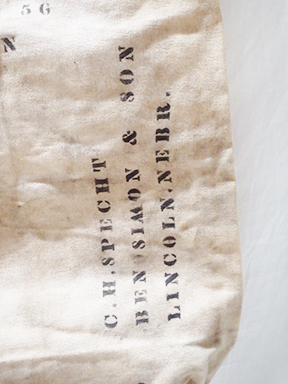 56
N
C.H.SPECHT
BEN SIMON & SON
LINCOLN.NEBR.